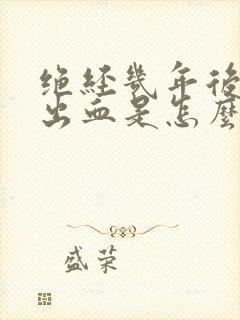 绝经几年后
出血是怎麽
盛荣